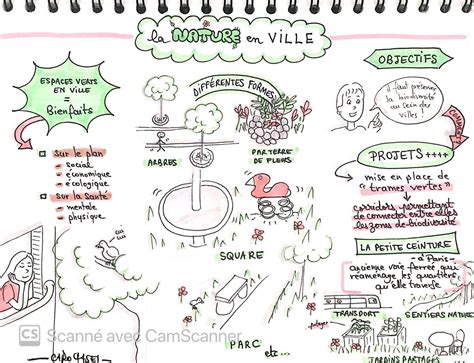 la NATURE en VILLE
ESPACES VERTS
EN VILLE
=
Bienfaits
Sur le plan
- social
- économique
- écologique
Sur la Santé
- mentale
- physique
DIFFÉRENTES FORMES
ARBRES
PARTERRE
DE FLEURS
SQUARE
PARC
etc...
OBJECTIFS
il faut préserver
la biodiversité
au sein des
villes!
PROJETS ++++
mise en place de
"trames vertes"
corridors permettant
de connecter entre elles
les zones de biodiversité
LA PETITE CEINTURE
- à Paris -
ancienne voie ferrée qui
réaménage les quartiers
qu'elle traverse
TRANSPORT
SENTIERS NATURE
JARDINS PARTAGÉS
cui
cui
CS Scanné avec CamScanner